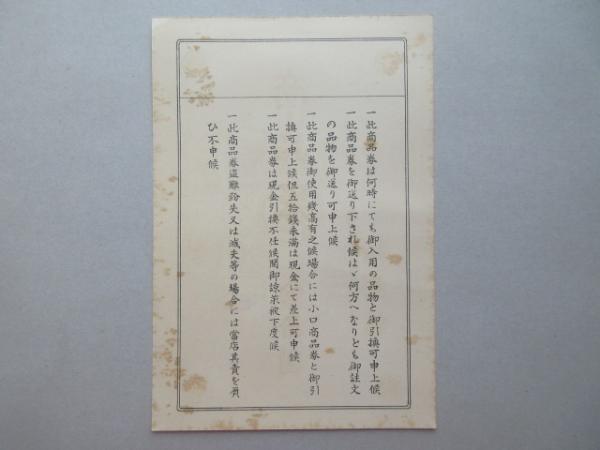 一此商品券は何時にても御入用の品物と御引換可申上候
一此商品券を御送り下され候はゞ何方へなりとも御註文
の品物を御送り可申上候
一此商品券御使用残高有之候場合には小口商品券と御引
換可申上候但五拾錢未満は現金にて差上可申候
一此商品券は現金引換不仕候間御諒承被下度候
一此商品券盗難紛失又は滅失等の場合には當店其責を負
ひ不申候